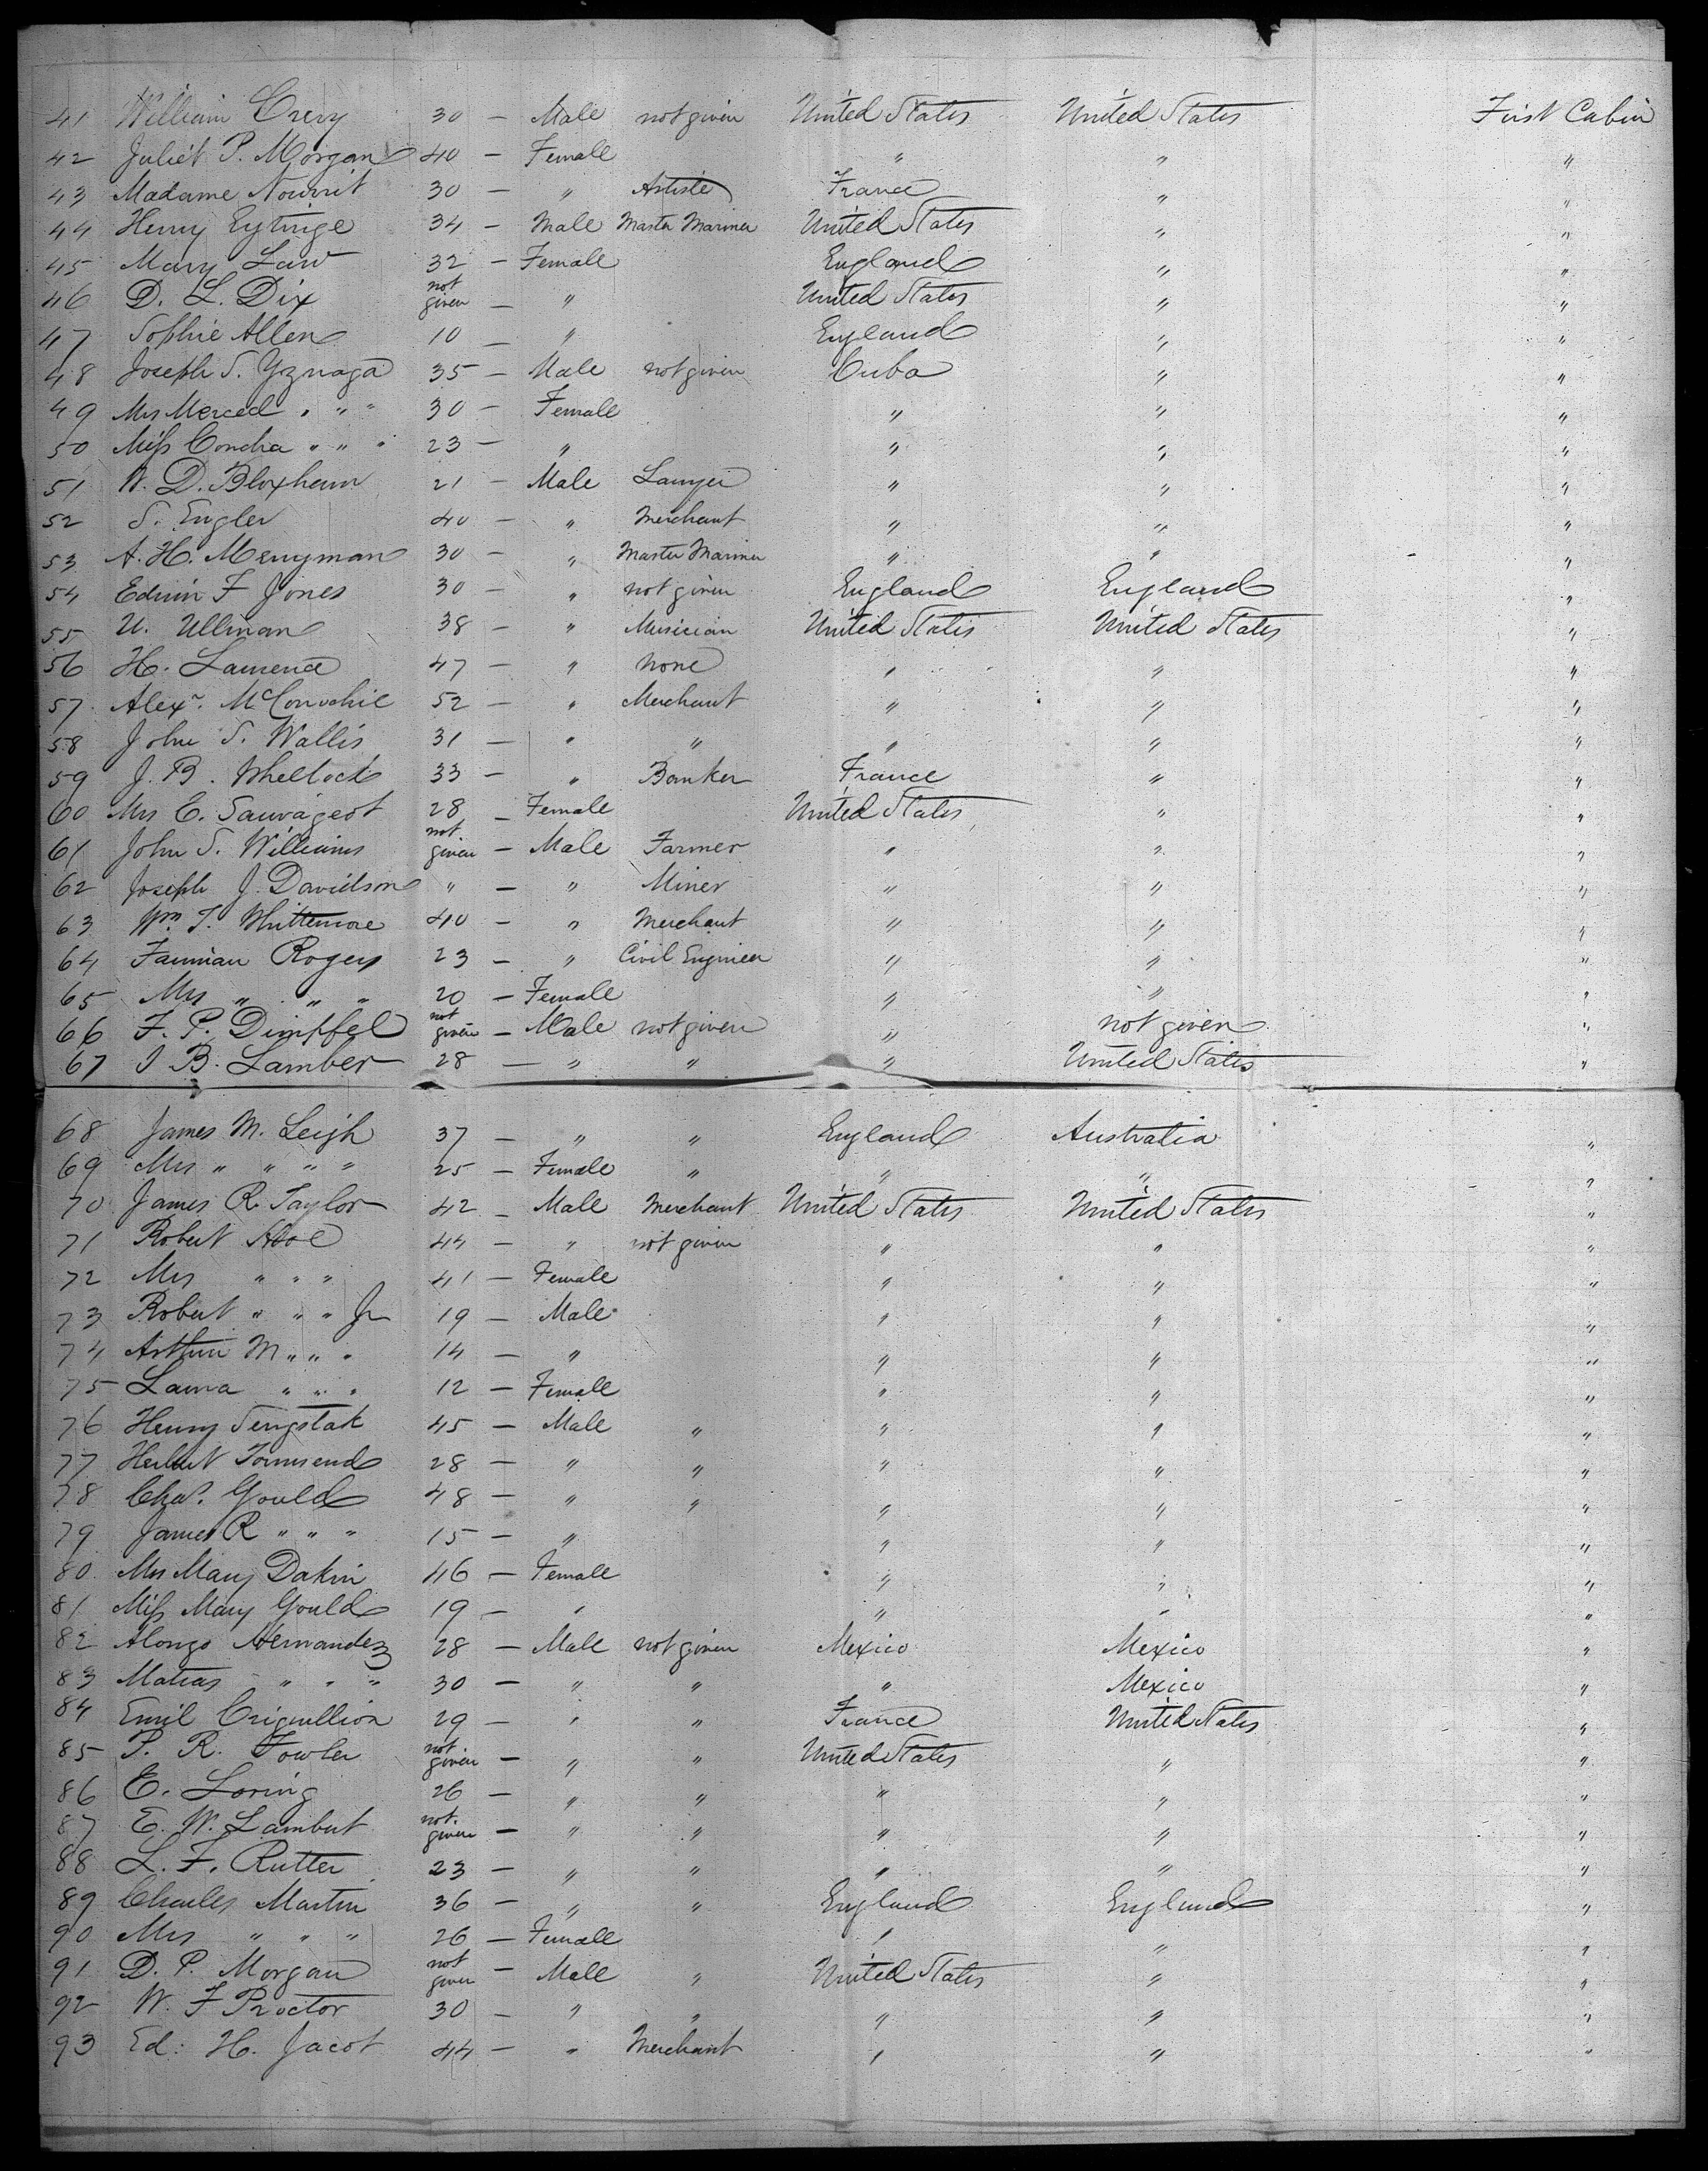 41 William Crery 30 — Male not given United States United States First Cabin
42 Juliet P. Morgan 40 — Female " " "
43 Madame Nourrit 30 — " Artiste France " "
44 Henry Eytinge 34 — Male Master Mariner United States " "
45 Mary Law 32 — Female England " "
46 D. L. Dix not given — " United States " "
47 Sophie Allen 10 — " England " "
48 Joseph S. Yznaga 35 — Male not given Cuba " "
49 Mrs Merced " " " 30 — Female " " "
50 Miss Concha " " " 23 — " " " "
51 W. D. Bloxham 21 — Male Lawyer " " "
52 S. Engler 40 — " Merchant " " "
53 A. H. Merryman 30 — " Master Mariner " " "
54 Edwin F Jones 30 — " not given England England "
55 U. Ullman 38 — " Musician United States United States "
56 H. Laurence 47 — " None " " "
57 Alexr. McConochie 52 — " Merchant " " "
58 John S. Wallis 31 — " " " " "
59 J. B. Whellock 33 — " Banker France " "
60 Mrs C. Sauvageot 28 — Female United States " "
61 John S. Williams not given — Male Farmer " " "
62 Joseph J. Davidson " — " Miner " " "
63 Wm. T. Whittemore 40 — " Merchant " " "
64 Fairman Rogers 23 — " Civil Engineer " " "
65 Mrs " " " 20 — Female " " "
66 F. P. Dimpfel not given — Male not given " not given "
67 J B. Lamber 28 — " " " United States "
68 James M. Leigh 37 — " " England Australia "
69 Mrs " " " " 25 — Female " " " "
70 James R. Taylor 42 — Male Merchant United States United States "
71 Robert Hoe 44 — " not given " " "
72 Mrs " " " 41 — Female " " "
73 Robert " " " Jr 19 — Male " " "
74 Arthur M " " " 14 — " " " "
75 Laura " " " 12 — Female " " "
76 Henry Sengstak 45 — Male " " " "
77 Herbert Townsend 28 — " " " " "
78 Chas. Gould 48 — " " " " "
79 James R " " " 15 — " " " "
80 Mrs Mary Dakin 46 — Female " " "
81 Miss Mary Gould 19 — " " " "
82 Alonzo Hernandez 28 — Male not given Mexico Mexico "
83 Matias " " " 30 — " " " Mexico "
84 Emil 29 — " " France United States "
85 P. R. Fowler not given — " " United States " "
86 E. Loring 26 — " " " " "
87 E. W. Lambert not given — " " " " "
88 L. F. Rutter 23 — " " " " "
89 Charles Martin 36 — " " England England "
90 Mrs " " " 26 — Female " " "
91 D. P. Morgan not given — Male " United States " "
92 W. F Proctor 30 — " " " " "
93 Ed: H. Jacot 44 — " Merchant " " "